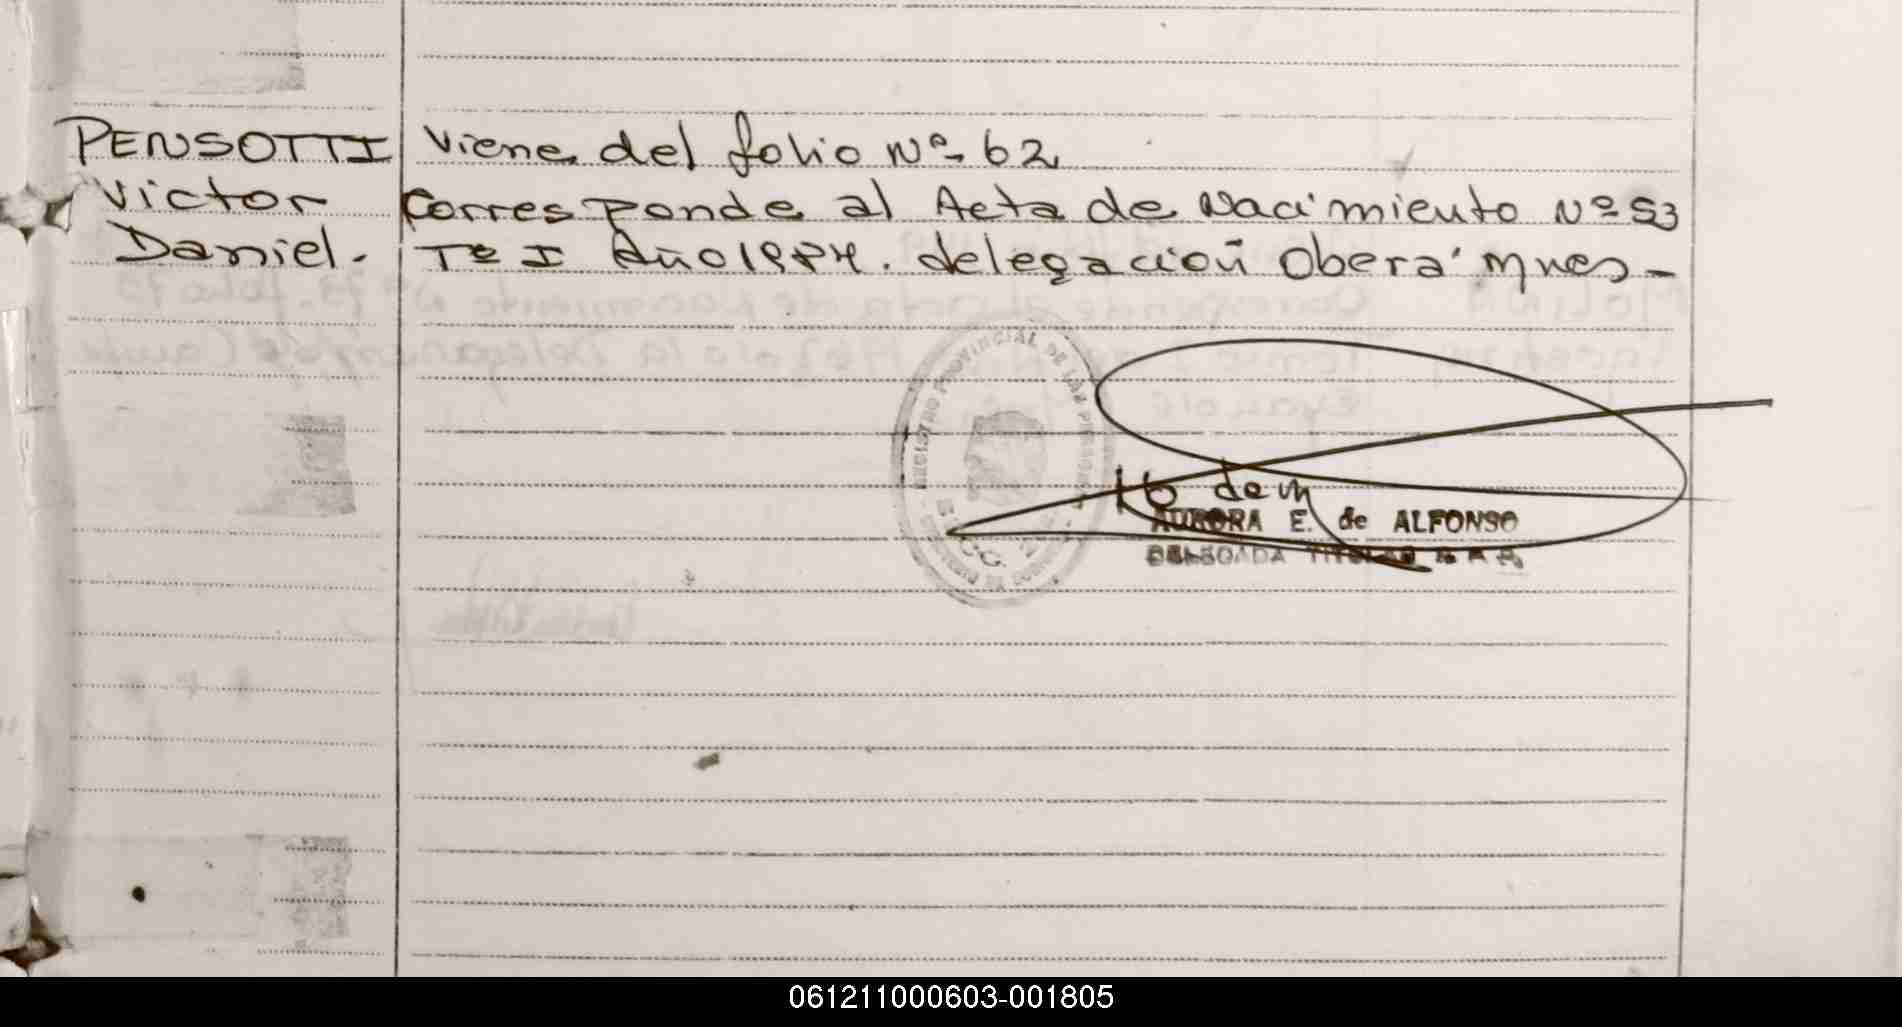 PENSOTTI
Victor
Daniel.
Viene del folio Nº 62
Corresponde al Acta de Nacimiento Nº 53
Tº I Año 1984. delegación Oberá Mnes-
REGISTRO PROVINCIAL DE LAS PERSONAS
AURORA E. de ALFONSO
DELEGADA TITULAR R. P.
061211000603-001805